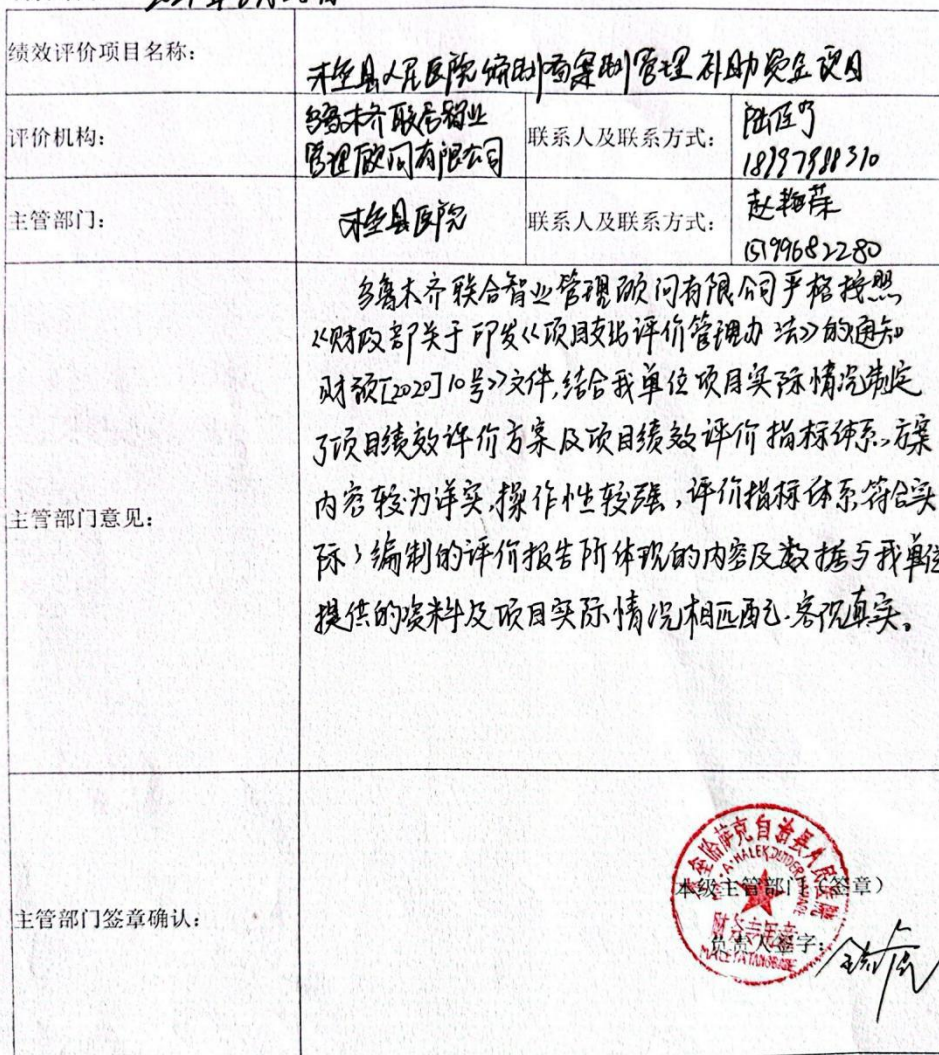 绩效评价项目名称：
木垒县人民医院编制备案制管理补助资金项目
评价机构：
乌鲁木齐联合智业
管理顾问有限公司
联系人及联系方式：
18197988310
主管部门：
木垒县医院
联系人及联系方式：
15199682280
主管部门意见：
乌鲁木齐联合智业管理顾问有限公司严格按照
《财政部关于印发《项目支出评价管理办法》的通知
财预[2020]10号》文件,结合我单位项目实际情况制定
了项目绩效评价方案及项目绩效评价指标体系,方案
内容较为详实,操作性较强,评价指标体系符合实
际,编制的评价报告所体现的内容及数据与我单位
提供的资料及项目实际情况相匹配、客观真实。
主管部门签章确认：
本级主管部门（签章）
负责人签字：
木垒哈萨克自治县人民医院
财务专用章